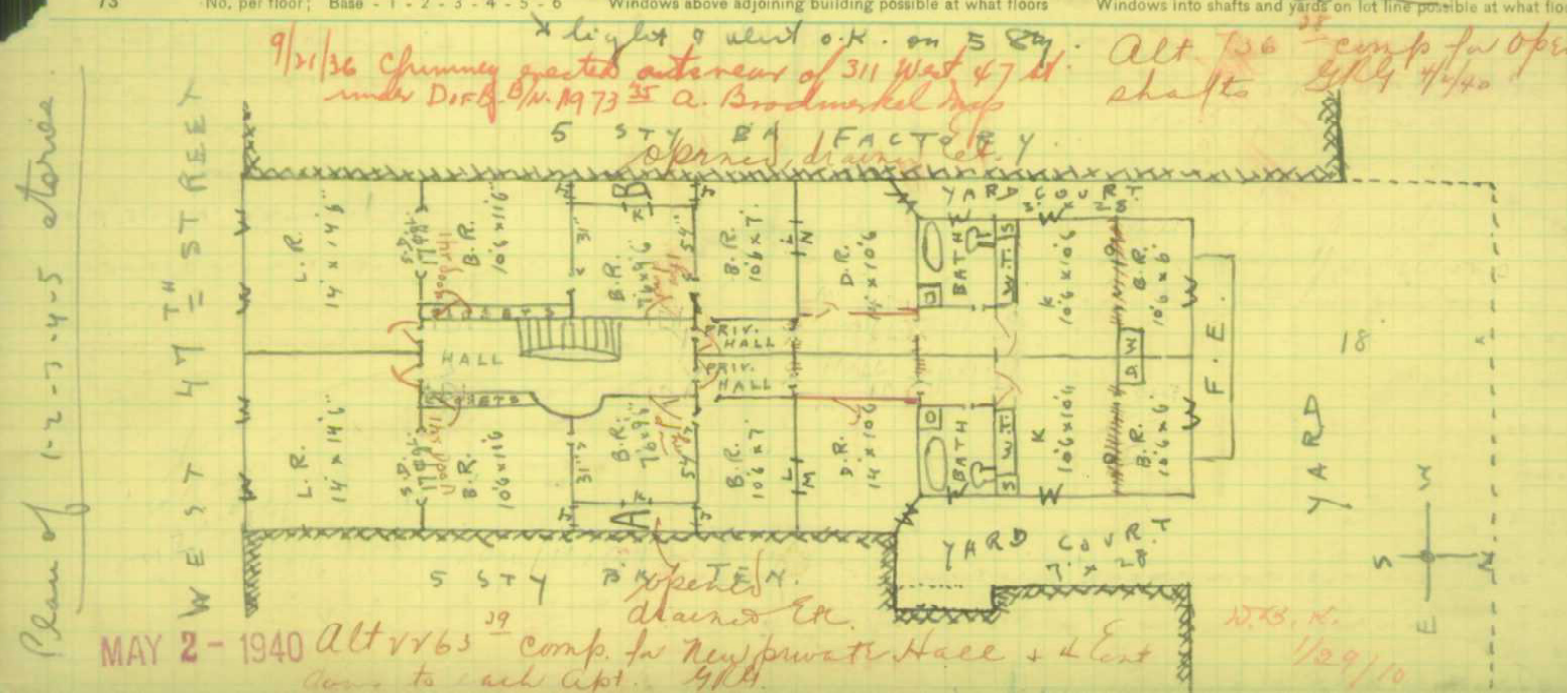 73 No. per floor; Base - 1 - 2 - 3 - 4 - 5 - 6 Windows above adjoining building possible at what floors Windows into shafts and yards on lot line possible at what
light & vent O.K. on 5 Sty.
9/21/36 Chimney erected outs rear of 311 West 47 St.
under D of B. B/N. 1973 35 A. Brodmerkel Insp
Alt 38 comp for
shafts GRG
5 STY FACTORY
opened, drained etc.
Plan of 1-2-3-4-5 stories
WEST 47TH STREET
YARD COURT
3' x 28'
L.R.
14' x 14'6"
B.R.
10'6 x 11'6"
31"
B
B.R.
7'6 x 9'6
54"
B.R.
10'6 x 7'
L
N
D.R.
14' x 10'6
BATH
W.T.
S
K
10'6 x 10'6
B.R.
10'6 x 6'
W
W
W
CLOSETS
HALL
PRIV. HALL
PRIV. HALL
CLOSETS
D.W.
F.E.
18'
YARD
L.R.
14' x 14'6"
B.R.
10'6 x 11'6
31"
A
B.R.
7'6 x 9'6"
54"
B.R.
10'6 x 7'
L
M
D.R.
14' x 10'6
BATH
W.T.
S
K
10'6 x 10'6
B.R.
10'6 x 6'
W
W
W
YARD COURT
7' x 28'
5 STY BK TEN.
opened
drained Etc.
W
S
N
E
MAY 2 - 1940 Alt 2263 39 comp. for New private Hall & Ent
to each Apt. GRG.
1/29/10